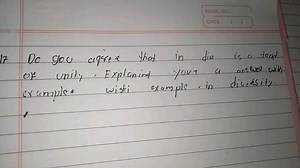 17 Do you agree that in die is a tool
of unity. Explaind your a answer with
example with example in diversity
DATE